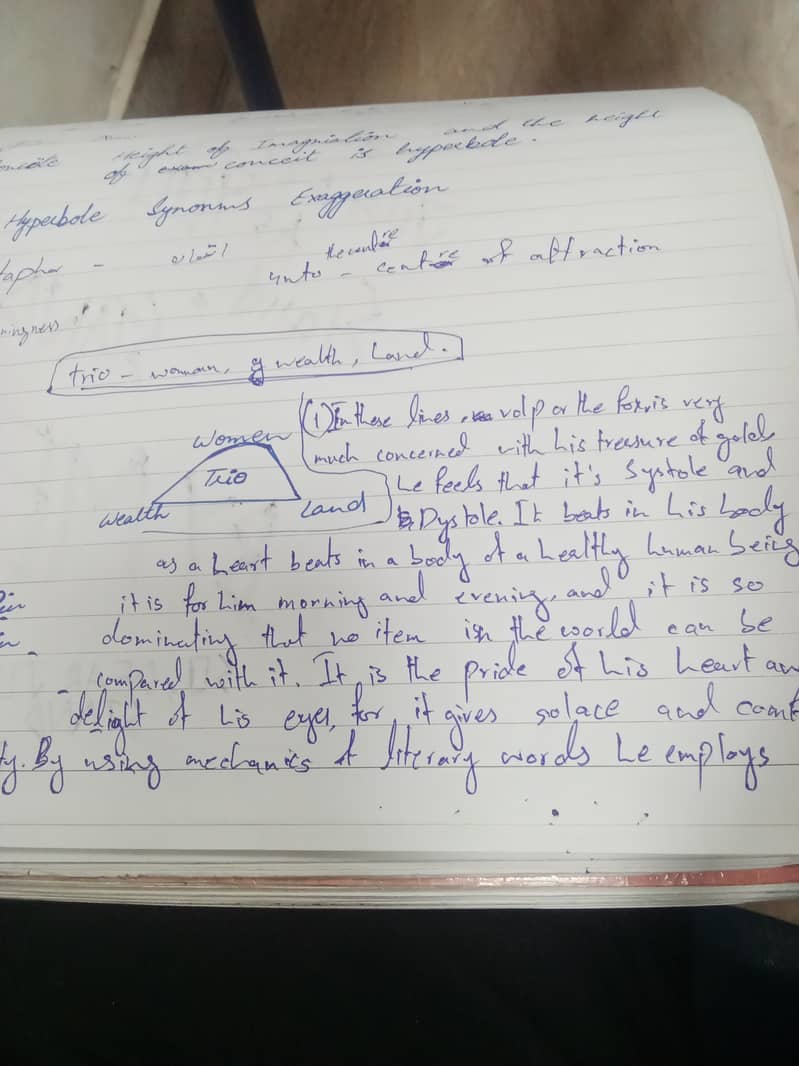 Height of Imagniation and the height
of conceit is hyperbole.
Hyperbole Synonms Exaggeration
the centre
into - centre of attraction
trio - woman, wealth, Land.
Women
Trio
Wealth Land
(1) In these lines, volp or the fox, is very
much concerned with his treasure of gold
he feels that it's Systole and
Dystole. It beats in his body
as a heart beats in a body of a healthy human being
it is for him morning and evening, and it is so
dominating that no item in the world can be
compared with it. It is the pride of his heart an
delight of his eyes, for it gives solace and comf
ty. By using mechanics of literary words he employs